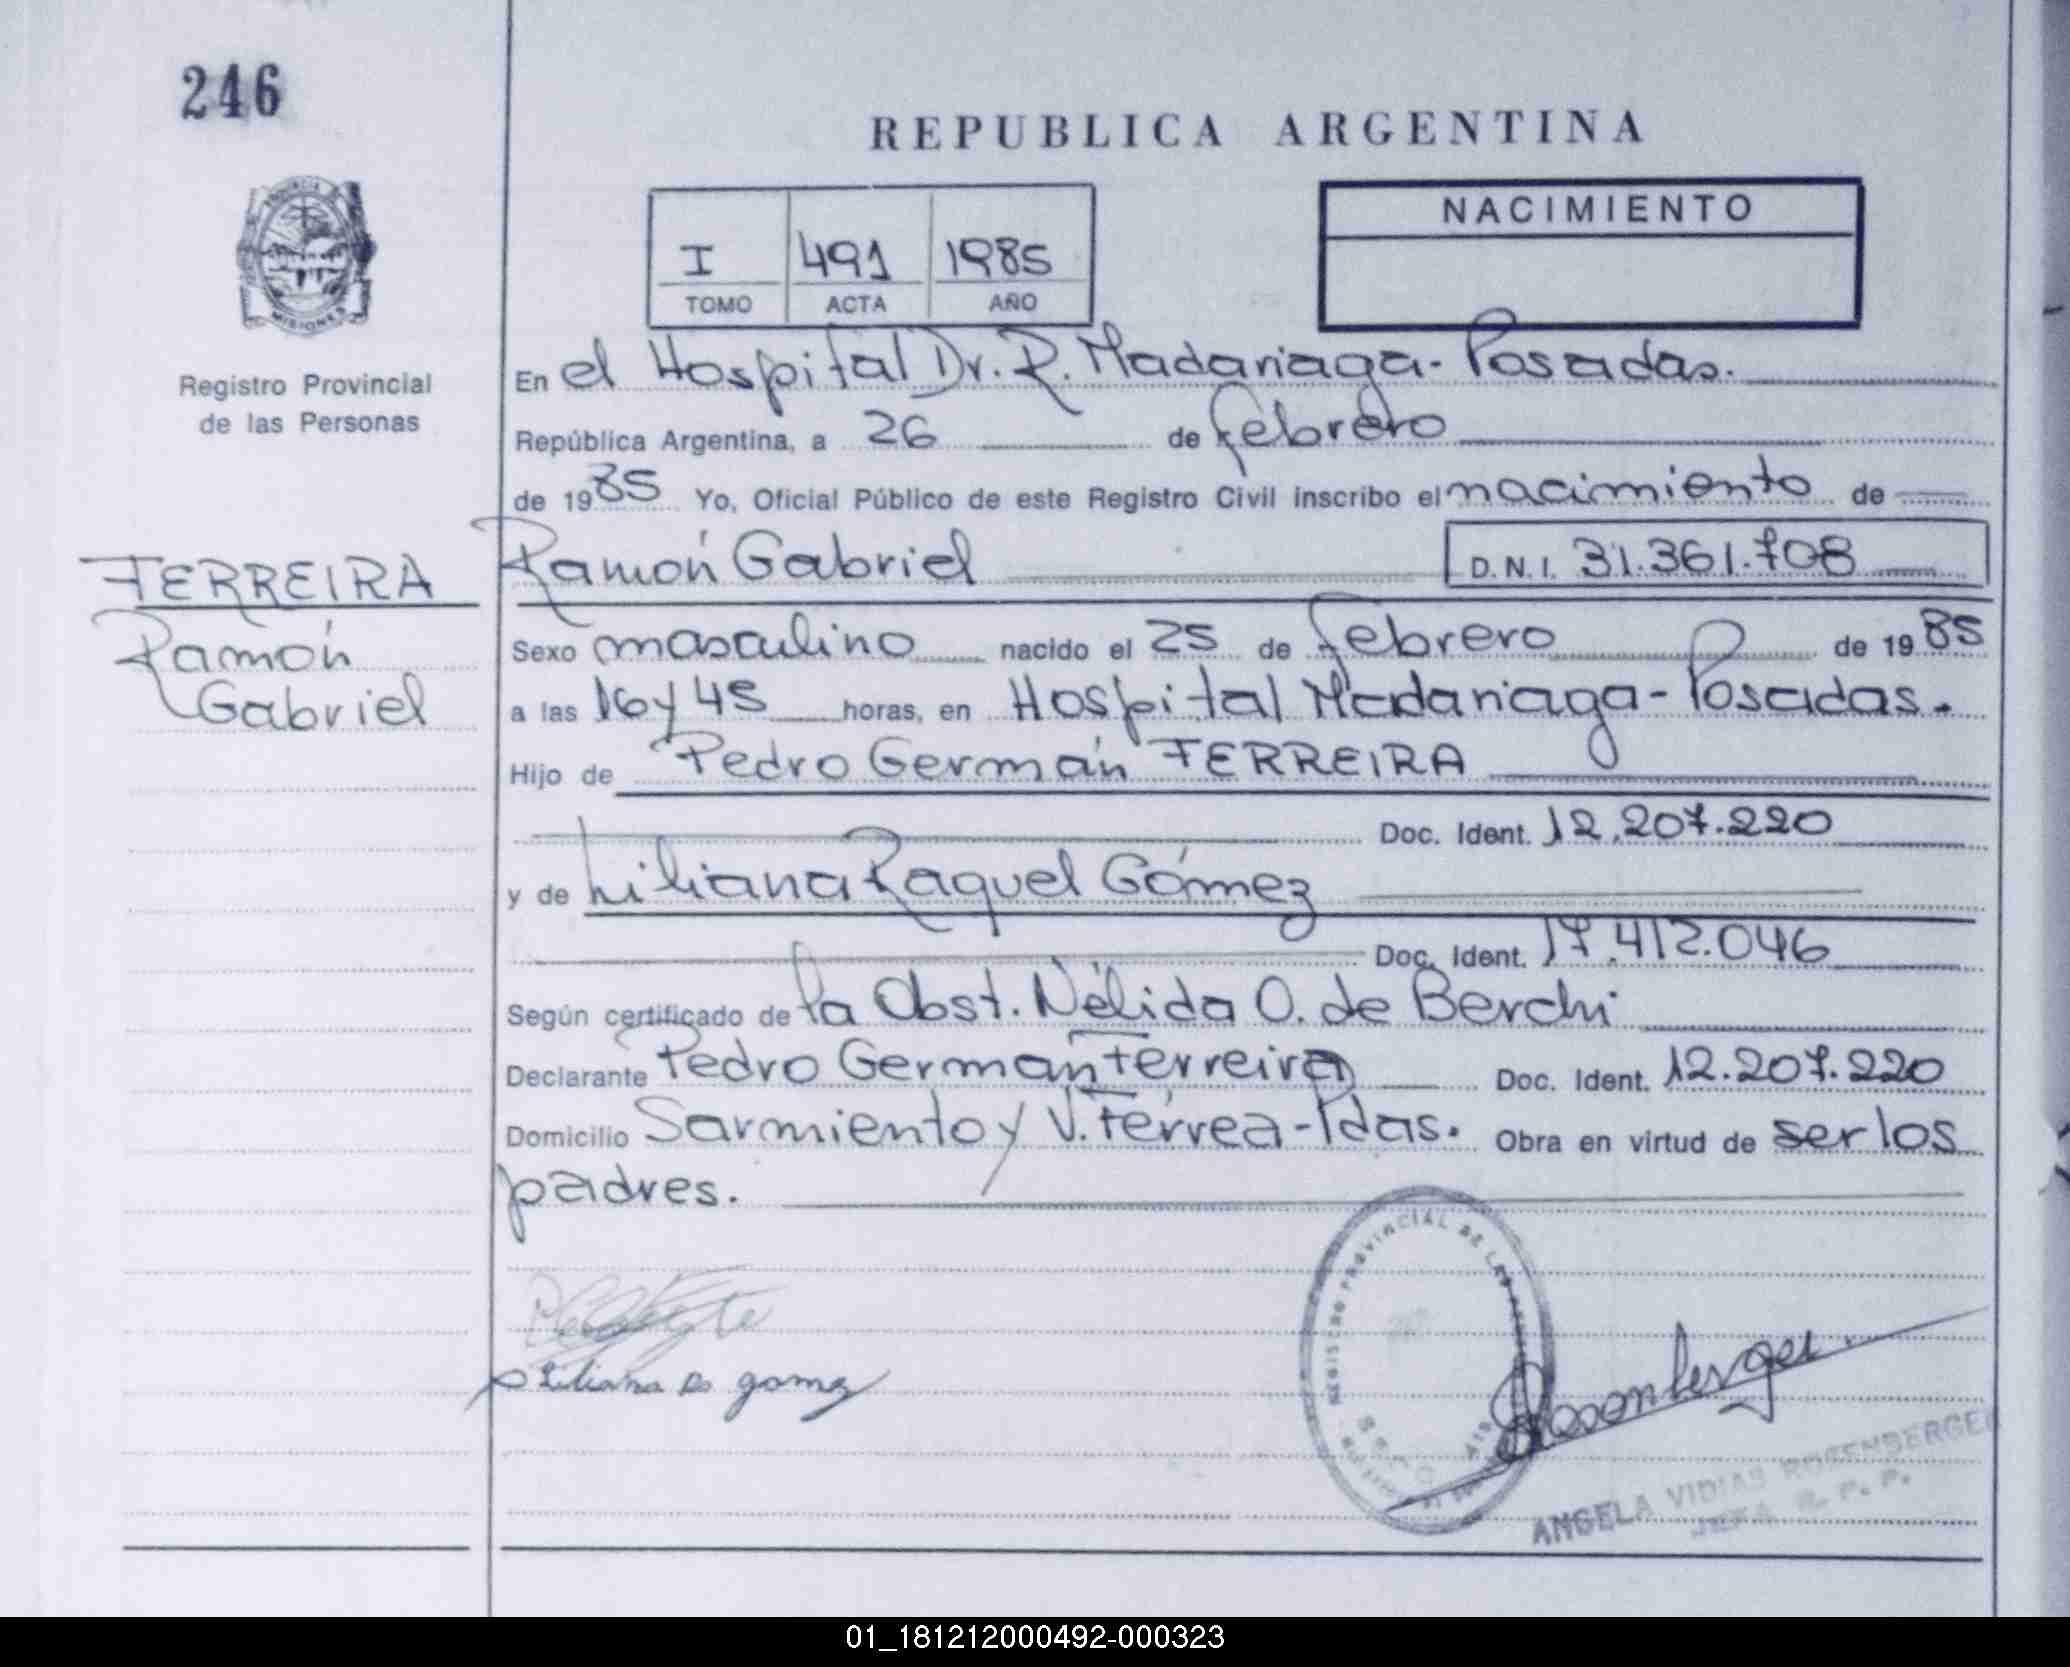 246
REPUBLICA ARGENTINA
NACIMIENTO
I 491 1985
TOMO ACTA AÑO
PROVINCIA DE
MISIONES
Registro Provincial
de las Personas
En el Hospital Dr. R. Madariaga - Posadas.
República Argentina, a 26 de febrero
de 1985 Yo, Oficial Público de este Registro Civil inscribo el nacimiento de
FERREIRA
Ramón
Gabriel
Ramón Gabriel D.N.I. 31.361.708
Sexo masculino nacido el 25 de febrero de 1985
a las 16 y 45 horas, en Hospital Madariaga - Posadas.
Hijo de Pedro Germán FERREIRA
Doc. Ident. 12.207.220
y de Liliana Raquel Gómez
Doc. Ident. 17.412.046
Según certificado de la Obst. Nélida O. de Berchi
Declarante Pedro Germán Ferreira Doc. Ident. 12.207.220
Domicilio Sarmiento y V. Férrea - Pdas. Obra en virtud de ser los
padres.
REGISTRO PROVINCIAL DE LAS
Liliana R gomez
Rosenberger
ANGELA VIDIAS ROSENBERGER
JEFA R. P. P.
01_181212000492-000323